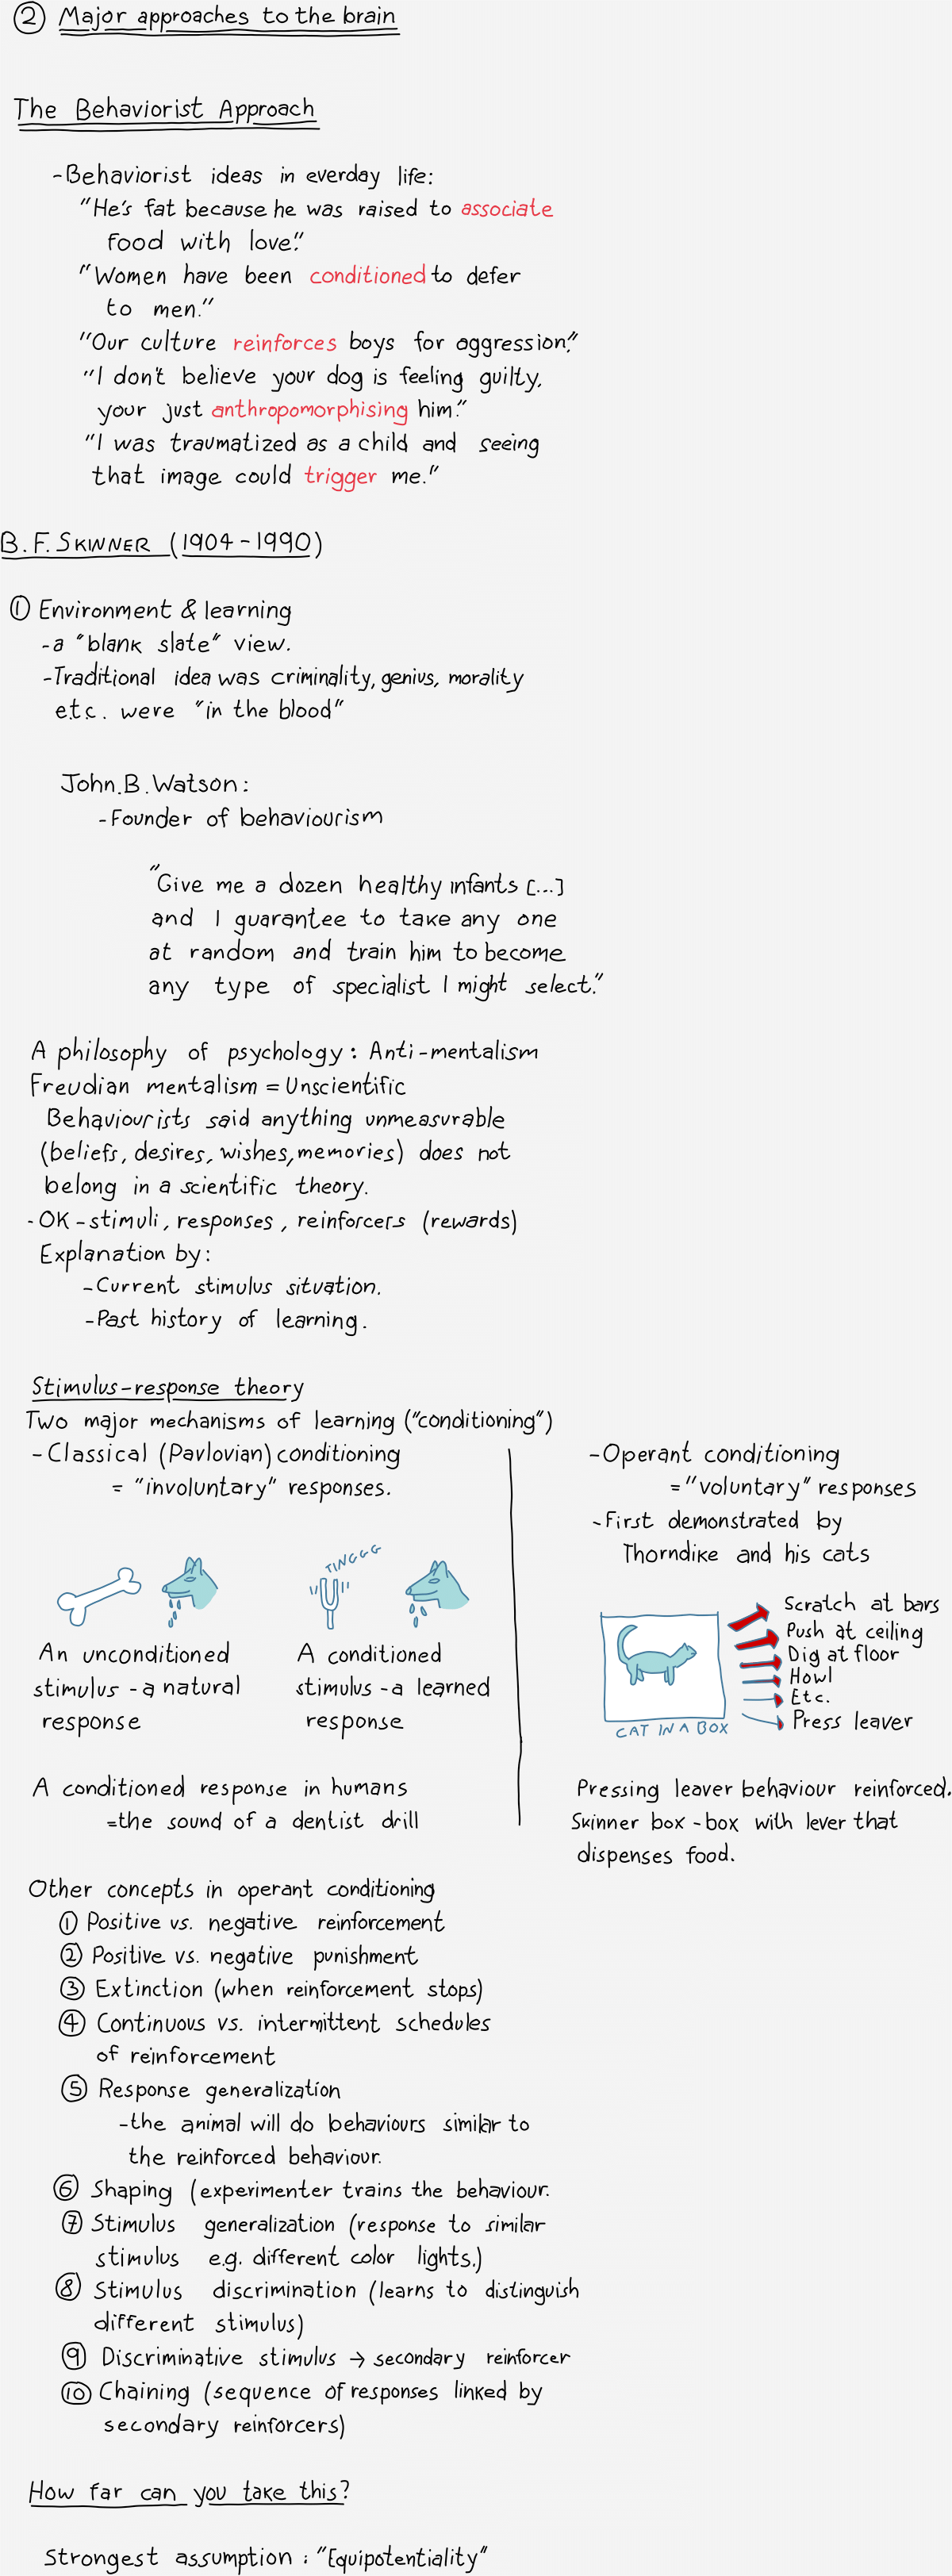 ② Major approaches to the brain
The Behaviorist Approach
-Behaviorist ideas in everday life:
"He's fat because he was raised to associate
food with love."
"Women have been conditioned to defer
to men."
"Our culture reinforces boys for aggression."
"I don't believe your dog is feeling guilty,
your just anthropomorphising him."
"I was traumatized as a child and seeing
that image could trigger me."
B.F. SKINNER (1904-1990)
① Environment & learning
-a "blank slate" view.
-Traditional idea was criminality, genius, morality
e.t.c. were "in the blood"
John.B.Watson:
-Founder of behaviourism
"Give me a dozen healthy infants [...]
and I guarantee to take any one
at random and train him to become
any type of specialist I might select."
A philosophy of psychology: Anti-mentalism
Freudian mentalism = Unscientific
Behaviourists said anything unmeasurable
(beliefs, desires, wishes, memories) does not
belong in a scientific theory.
-OK-stimuli, responses, reinforcers (rewards)
Explanation by:
-Current stimulus situation.
-Past history of learning.
Stimulus-response theory
Two major mechanisms of learning ("conditioning")
-Classical (Pavlovian) conditioning
= "involuntary" responses.
TINGGG
An unconditioned
stimulus -a natural
response
A conditioned
stimulus -a learned
response
A conditioned response in humans
=the sound of a dentist drill
-Operant conditioning
="voluntary" responses
-First demonstrated by
Thorndike and his cats
Scratch at bars
Push at ceiling
Dig at floor
Howl
Etc.
Press leaver
CAT IN A BOX
Pressing leaver behaviour reinforced.
Skinner box -box with lever that
dispenses food.
Other concepts in operant conditioning
① Positive vs. negative reinforcement
② Positive vs. negative punishment
③ Extinction (when reinforcement stops)
④ Continuous vs. intermittent schedules
of reinforcement
⑤ Response generalization
-the animal will do behaviours similar to
the reinforced behaviour.
⑥ Shaping (experimenter trains the behaviour.
⑦ Stimulus generalization (response to similar
stimulus e.g. different color lights.)
⑧ Stimulus discrimination (learns to distinguish
different stimulus)
⑨ Discriminative stimulus → secondary reinforcer
⑩ Chaining (sequence of responses linked by
secondary reinforcers)
How far can you take this?
Strongest assumption: "Equipotentiality"